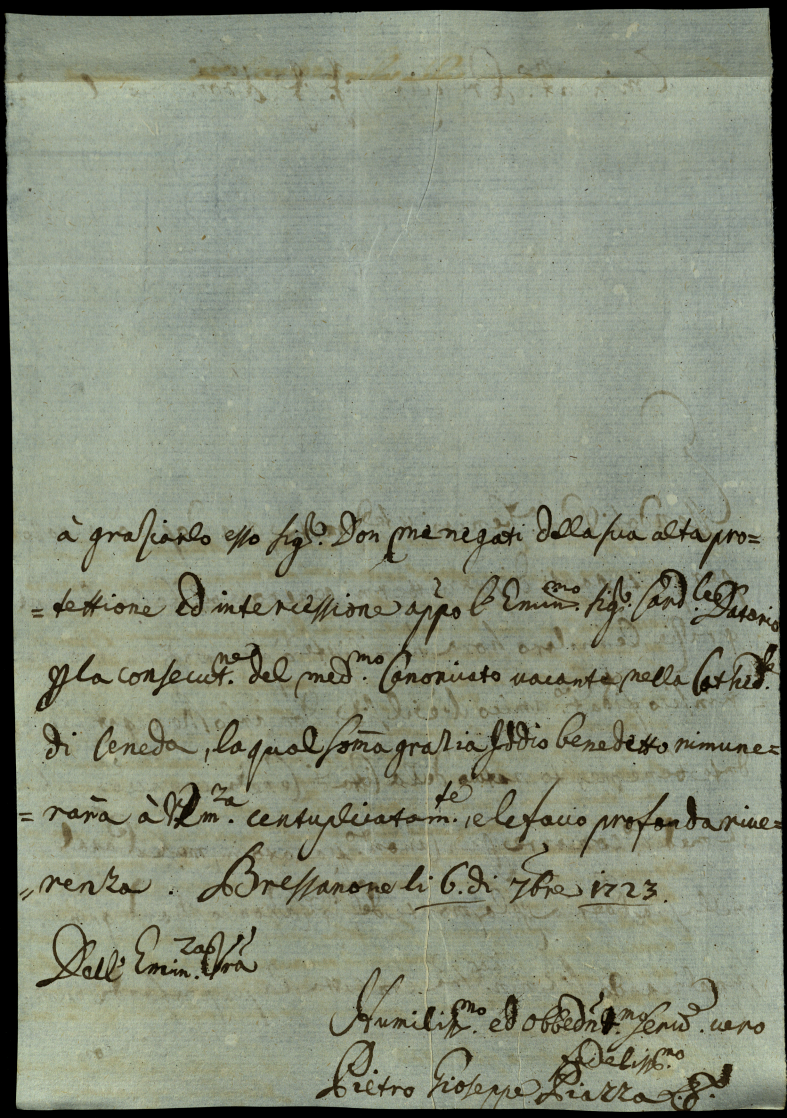 à graziarlo esso Sig.re Don Menegati della sua alta pro=
=tettione ed intercessione appo l'Emin.mo Sig.r Card.le Datario
per la consecut.ne del med.mo Canonicato vacante nella Cathed.le
di Ceneda, la qual som̃a grazia Iddio benedetto rimune=
=rarà à V. Em.za centuplicatam.te, e le facio profonda rive=
=renza. Bressanone li 6. di 7bre 1723.
Dell' Emin.za Vrã
Humiliss.mo ed obbed.mo Serv.e vero
fedeliss.mo
Pietro Gioseppe Piazza